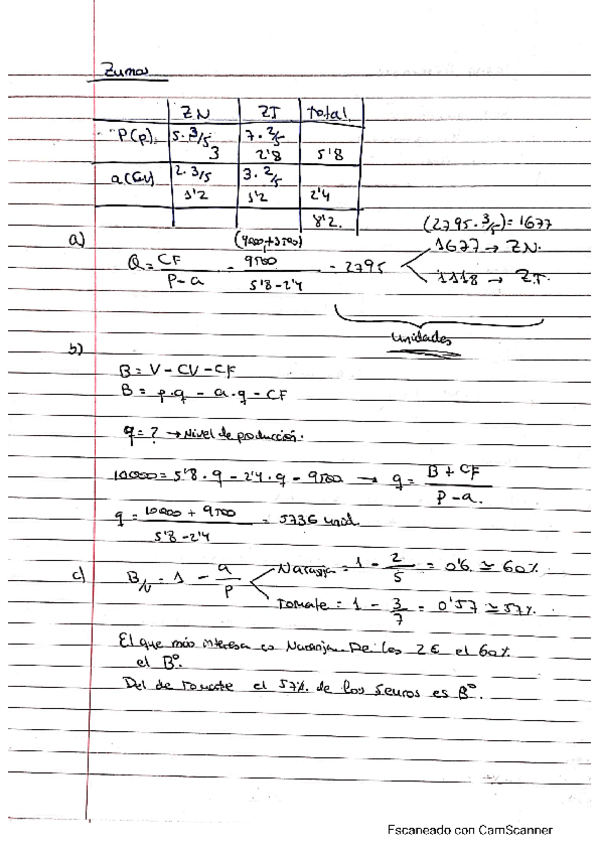 Zumos
ZN ZT Total
P(p) 5·3/5 7·2/5
3 2'8 5'8
a(CV) 2·3/5 3·2/5
1'2 1'2 2'4
8'2.
a) (9000+3500) (2795·3/5)=1677
Q = CF / P-a = 9500 / 5'8-2'4 = 2795 1677 → ZN.
1118 → ZT.
unidades
b)
B = V - CV - CF
B = p·q - a·q - CF
q = ? → Nivel de producción.
10000 = 5'8·q - 2'4·q - 9500 → q = B + CF / P-a.
q = 10000 + 9500 / 5'8-2'4 = 5736 unid.
c) B/V = 1 - a/p Naranja = 1 - 2/5 = 0'6 ≃ 60%.
Tomate = 1 - 3/7 = 0'57 ≃ 57%.
El que más interesa es Naranja. De los 2€ el 60%
el Bº.
Del de tomate el 57% de los 5 euros es Bº.
Escaneado con CamScanner